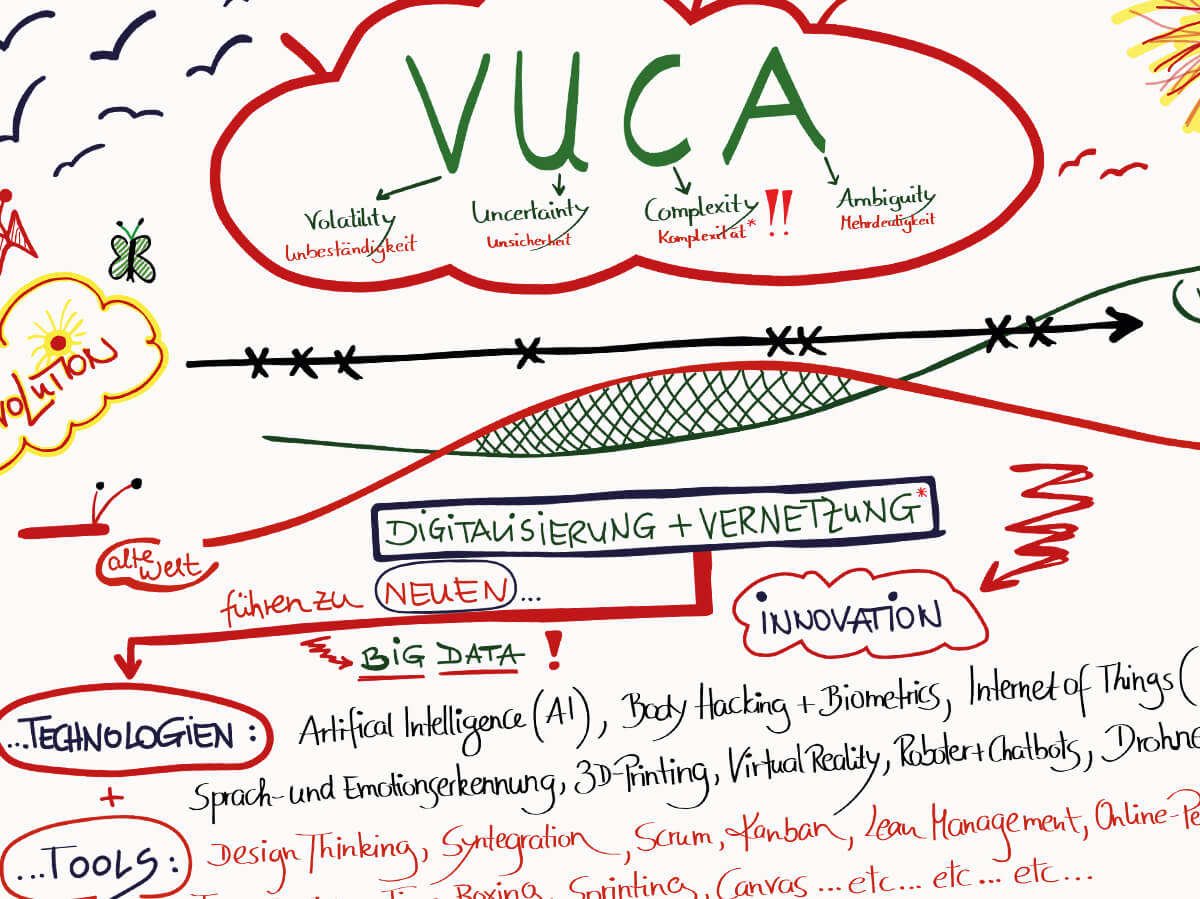 VUCA
Volatility
Unbeständigkeit
Uncertainty
Unsicherheit
Complexity
Komplexität* !!
Ambiguity
Mehrdeutigkeit
VOLUTION
alte
Welt
DIGITALISIERUNG + VERNETZUNG*
führen zu NEUEN ...
INNOVATION
BIG DATA !
...TECHNOLOGIEN: Artifical Intelligence (AI), Body Hacking + Biometrics, Internet of Things (
Sprach- und Emotionserkennung, 3D-Printing, Virtual Reality, Roboter + Chatbots, Drohne
+
...TOOLS: Design Thinking, Syntegration, Scrum, Kanban, Lean Management, Online-Pe
Boxing, Sprinting, Canvas ... etc ... etc ... etc ...